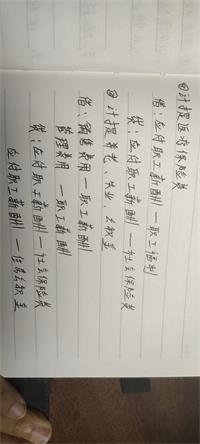 ④计提医疗保险类
借:应付职工薪酬—职工福利
贷:应付职工薪酬—社会保险费
④计提养老、失业、公积金
借:销售费用—职工薪酬
管理费用—职工薪酬
贷:应付职工薪酬—社会保险费
应付职工薪酬—住房公积金